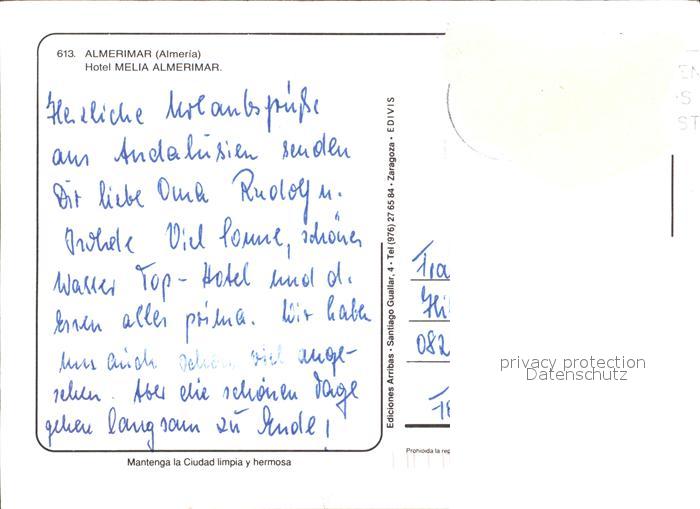 613. ALMERIMAR (Almería)
Hotel MELIA ALMERIMAR.
Herzliche Urlaubsgrüße
aus Andalusien senden
Dir liebe Oma Rudolf u.
Viel Sonne, schönes
Wasser Top-Hotel und d.
Essen alles prima. Wir haben
uns auch schon viel ange-
sehen. Aber die schönen Tage
gehen langsam zu Ende!
Mantenga la Ciudad limpia y hermosa
Ediciones Arribas - Santiago Guallar, 4 - Tel (976) 27 65 84 - Zaragoza - EDIVIS
082
Prohibida la rep
privacy protection
Datenschutz
EN
S
ST